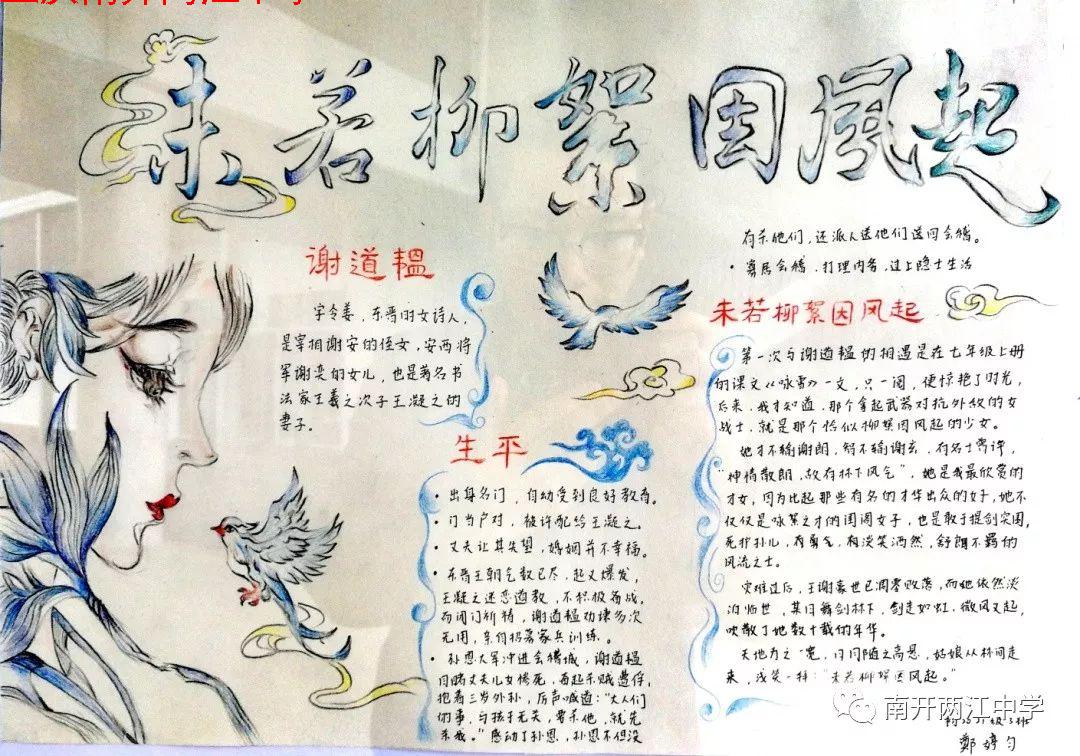 未若柳絮因风起
谢道韫
字令姜，东晋时女诗人，
是宰相谢安的侄女，安西将
军谢奕的女儿，也是著名书
法家王羲之次子王凝之的
妻子。
生平
• 出身名门，自幼受到良好教育。
• 门当户对，被许配给王凝之。
• 丈夫让其失望，婚姻并不幸福。
• 东晋王朝气数已尽，起义爆发，
王凝之迷恋道教，不积极备战，
而闭门祈祷，谢道韫劝谏多次
无用，亲自招募家兵训练。
• 孙恩大军冲进会稽城，谢道韫
目睹丈夫儿女惨死，
抱着三岁外孙，厉声喊道：“大人们
的事，与孩子无关，要杀他，就先
杀我。”感动了孙恩，孙恩不但没
有杀他们，还派人送他们送回会稽。
• 寡居会稽，打理内务，过上隐士生活
未若柳絮因风起
第一次与谢道韫的相遇是在七年级上册
的课文《咏雪》一文，只一阅，便惊艳了时光，
后来，我才知道，那个拿起武器对抗外敌的女
战士，就是那个恰似柳絮因风起的少女。
她才不输谢朗，智不输谢玄，有名士寄评，
“神情散朗，故有林下风气”，她是我最欣赏的
才女，因为比起那些有名的才华出众的女子，她不
仅仅是咏絮之才的闺阁女子，也是敢于提剑突围，
死护孙儿，有勇气，有谈笑洒然，舒朗不羁的
风流之士。
灾难过后，王谢豪世已凋零败落，而她依然淡
泊悟世，某日舞剑林下，剑走如虹，微风又起，
吹散了她数十载的年华。
天地为之一宽，日月随之高悬，姑娘从林间走
来，浅笑一拜：“未若柳絮因风起。”
南开两江中学